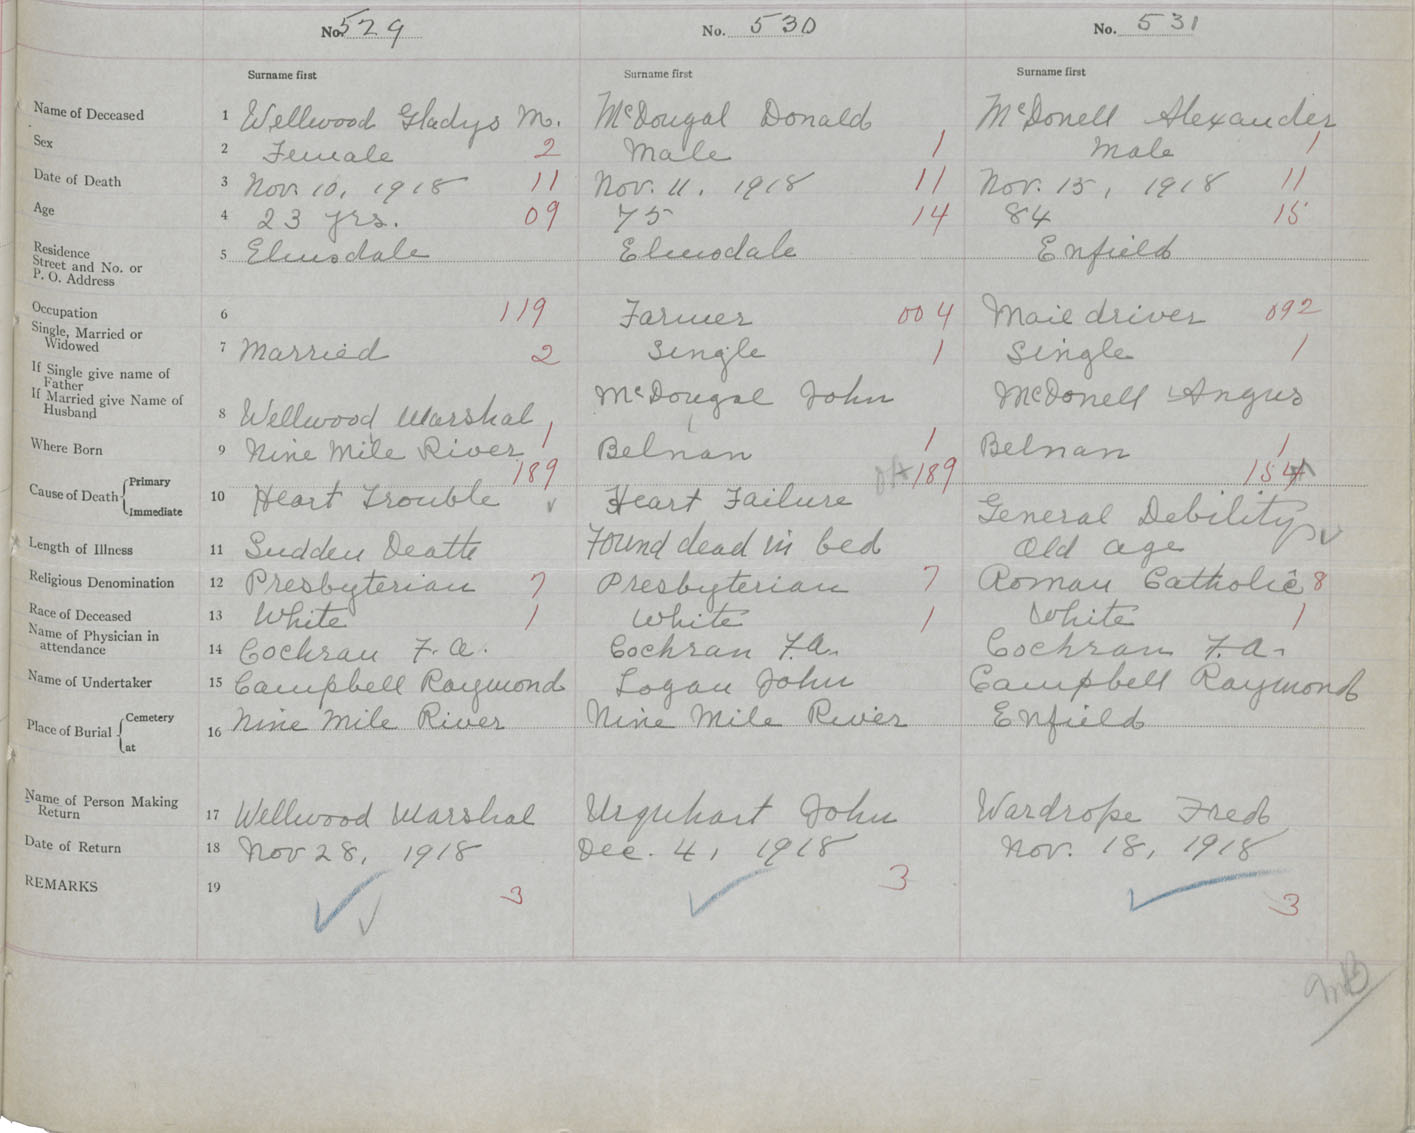 No. 529 No. 530 No. 531
Surname first Surname first Surname first
Name of Deceased 1 Wellwood Gladys M. McDougal Donald McDonell Alexander
Sex 2 Female 2 Male 1 Male 1
Date of Death 3 Nov. 10, 1918 11 Nov. 11. 1918 11 Nov. 15, 1918 11
Age 4 23 yrs. 09 75 14 84 15
Residence
Street and No. or
P. O. Address 5 Elmsdale Elmsdale Enfield
Occupation 6 119 Farmer 004 Mail driver 092
Single, Married or
Widowed 7 Married 2 Single 1 Single 1
If Single give name of
Father
If Married give Name of
Husband 8 Wellwood Marshal McDougal John McDonell Angus
Where Born 9 Nine Mile River 1 Belnan 1 Belnan 1
189 189 154
Cause of Death { Primary
Immediate 10 Heart Trouble Heart Failure General Debility
Length of Illness 11 Sudden Death Found dead in bed Old age
Religious Denomination 12 Presbyterian 7 Presbyterian 7 Roman Catholic 8
Race of Deceased 13 White 1 White 1 White 1
Name of Physician in
attendance 14 Cochran F. A. Cochran F.A. Cochran F.A.
Name of Undertaker 15 Campbell Raymond Logan John Campbell Raymond
Place of Burial { Cemetery
at 16 Nine Mile River Nine Mile River Enfield
Name of Person Making
Return 17 Wellwood Marshal Urquhart John Wardrope Fred
Date of Return 18 Nov 28, 1918 Dec. 4, 1918 Nov. 18, 1918
REMARKS 19 3 3 3